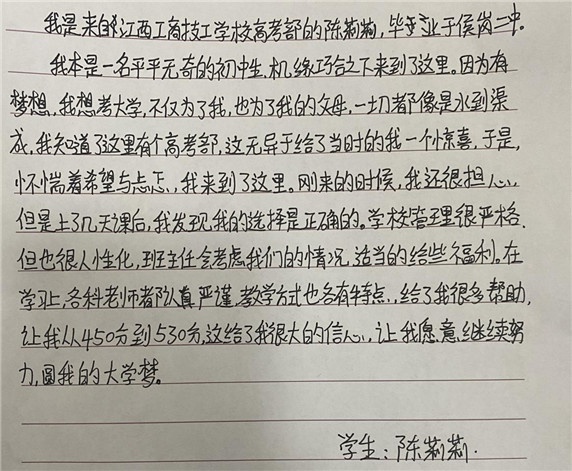 我是来自江西工商技工学校高考部的陈莉莉,毕业于侯岗二中。
我本是一名平平无奇的初中生,机缘巧合之下来到了这里。因为有
梦想,我想考大学,不仅为了我,也为了我的父母,一切都像是水到渠
成,我知道了这里有个高考部,这无异于给了当时的我一个惊喜,于是,
怀惴着希望与忐忑,我来到了这里。刚来的时候,我还很担心,
但是上了几天课后,我发现我的选择是正确的。学校管理很严格,
但也很人性化,班主任会考虑我们的情况,适当的给些福利。在
学习上,各科老师都认真严谨,教学方式也各有特点,给了我很多帮助,
让我从450分到530分,这给了我很大的信心,让我愿意继续努
力,圆我的大学梦。
学生:陈莉莉.